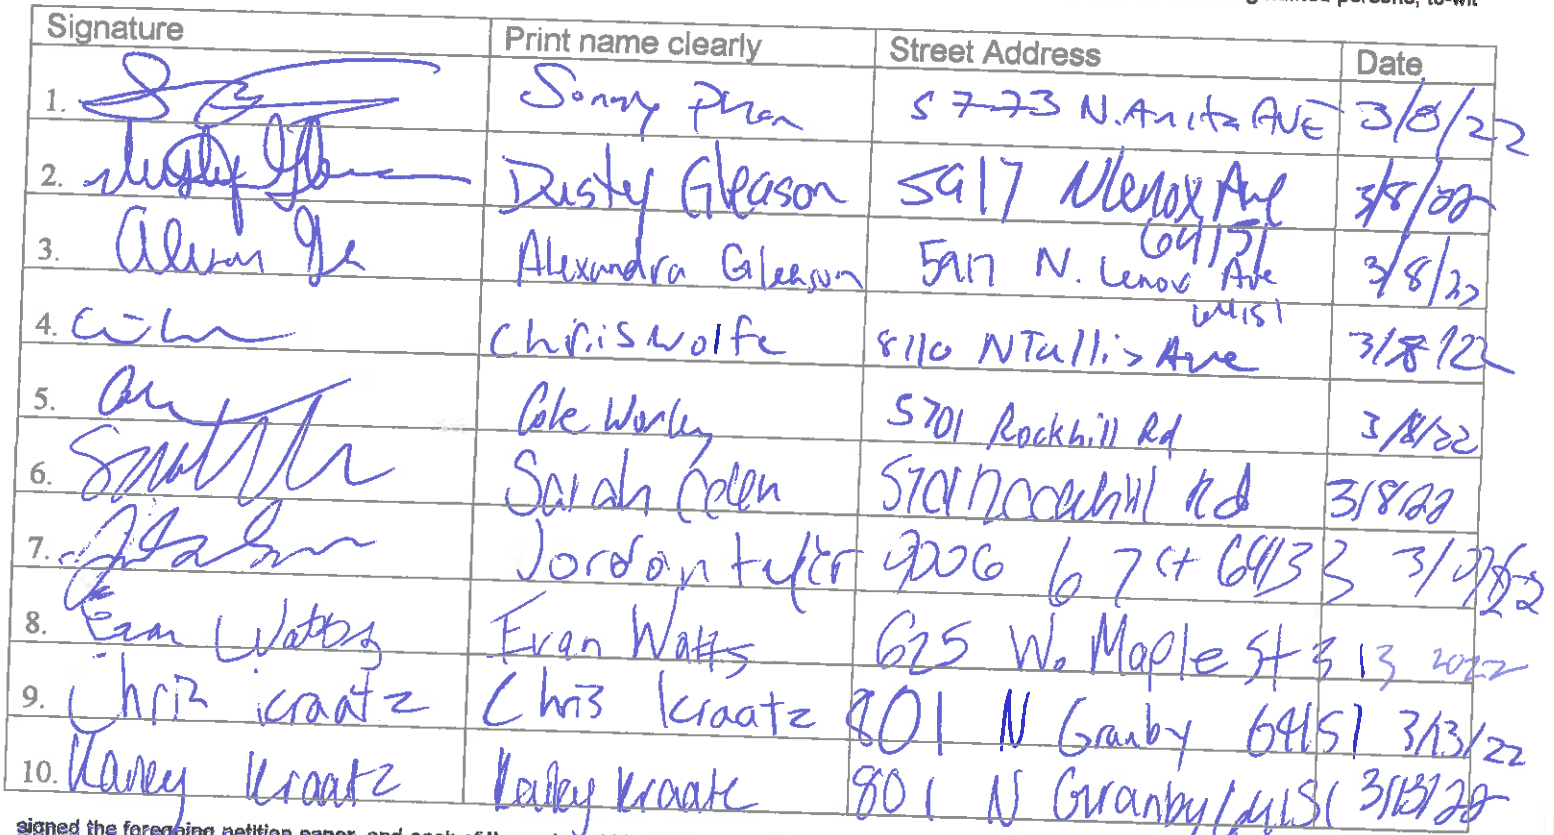 persons, to-wit
Signature Print name clearly Street Address Date
1. Sonny Phan 5773 N. Anita AVE 3/8/22
2. Dusty Gleason 5917 N Lenox Ave 3/8/22
64151
3. Alexandra Gleason 5917 N. Lenox Ave 3/8/22
64151
4. Chris Wolfe 8110 N Tullis Ave 3/8/22
5. Cole Worley 5701 Rockhill Rd 3/8/22
6. Sarah 5701 Rockhill Rd 3/8/22
7. Jordan 9006 67 ct 64133
8. Evan Watts Evan Watts 625 W. Maple St 3 13 2022
9. Chris Kraatz Chris Kraatz 801 N Granby 64151 3/13/22
10. Kailey Kraatz Kailey Kraatz 801 N Granby 3/13/22
signed the foregoing petition paper, and each of